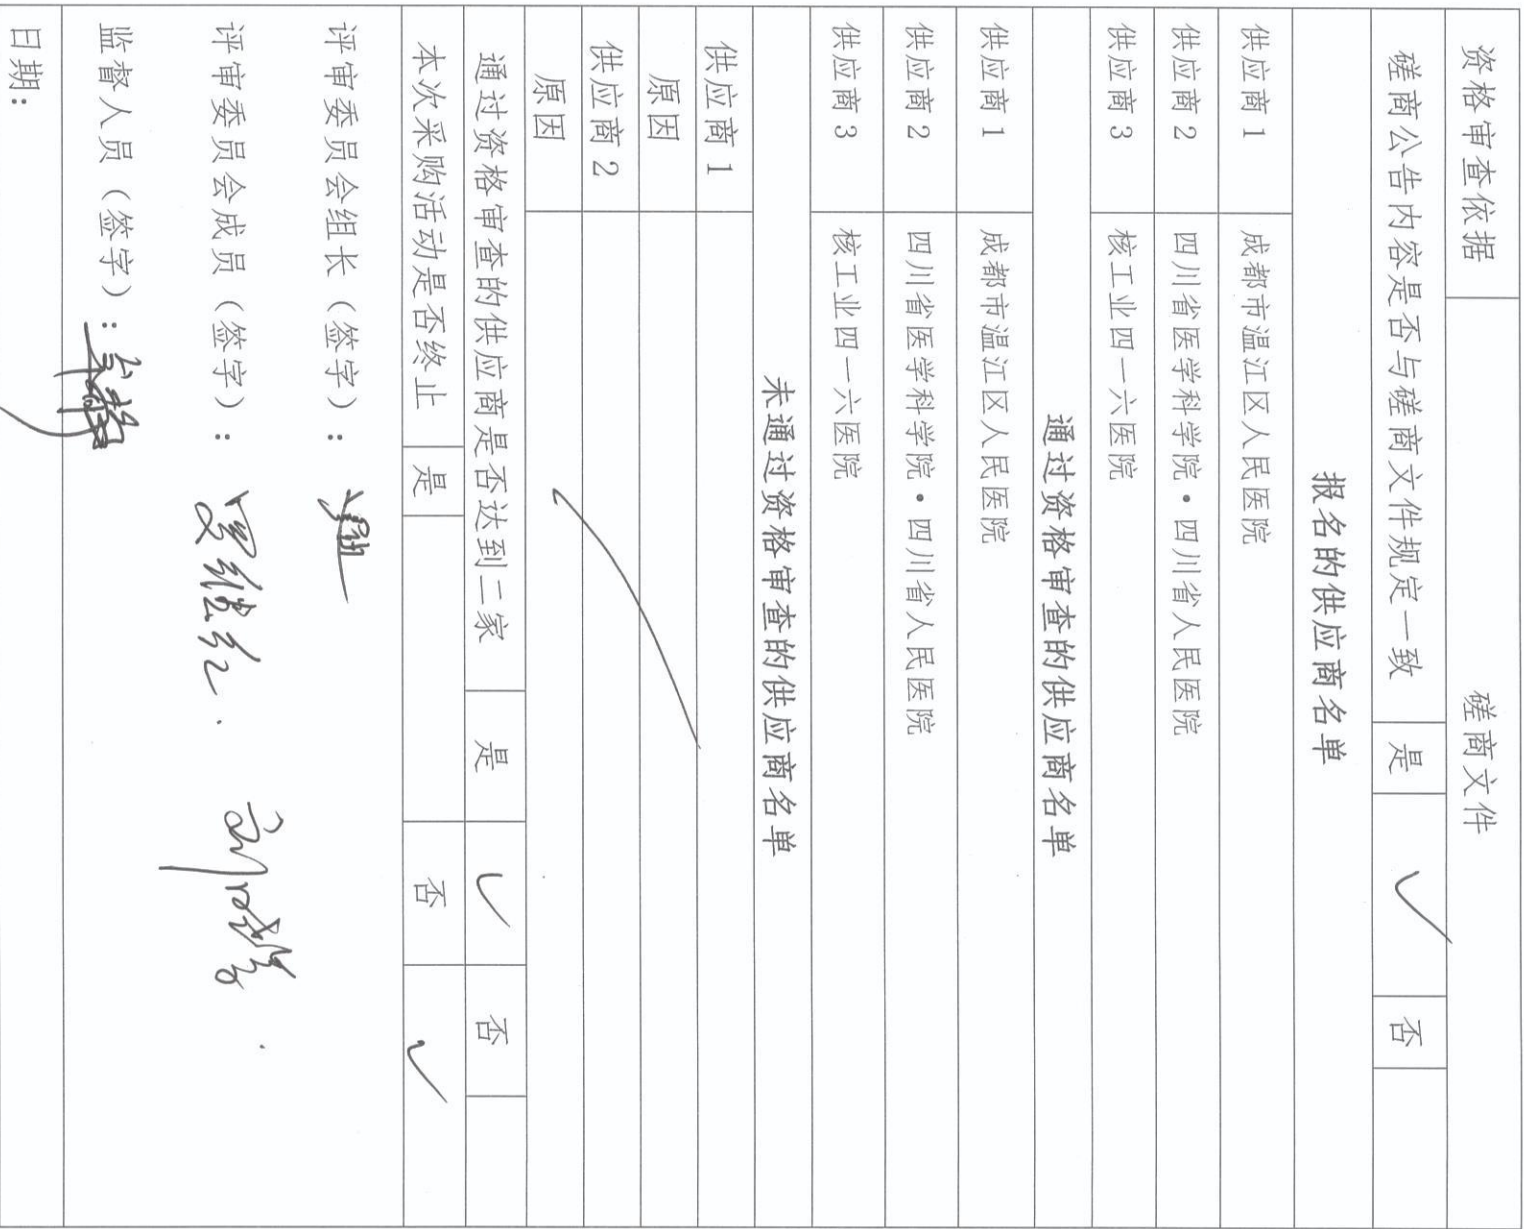 资格审查依据 磋商文件
磋商公告内容是否与磋商文件规定一致 是 ✓ 否
报名的供应商名单
供应商1 成都市温江区人民医院
供应商2 四川省医学科学院·四川省人民医院
供应商3 核工业四一六医院
通过资格审查的供应商名单
供应商1 成都市温江区人民医院
供应商2 四川省医学科学院·四川省人民医院
供应商3 核工业四一六医院
未通过资格审查的供应商名单
供应商1
原因
供应商2
原因
通过资格审查的供应商是否达到二家 是 ✓ 否
本次采购活动是否终止 是 否 ✓
评审委员会组长（签字）：
评审委员会成员（签字）：
监督人员（签字）：
日期：